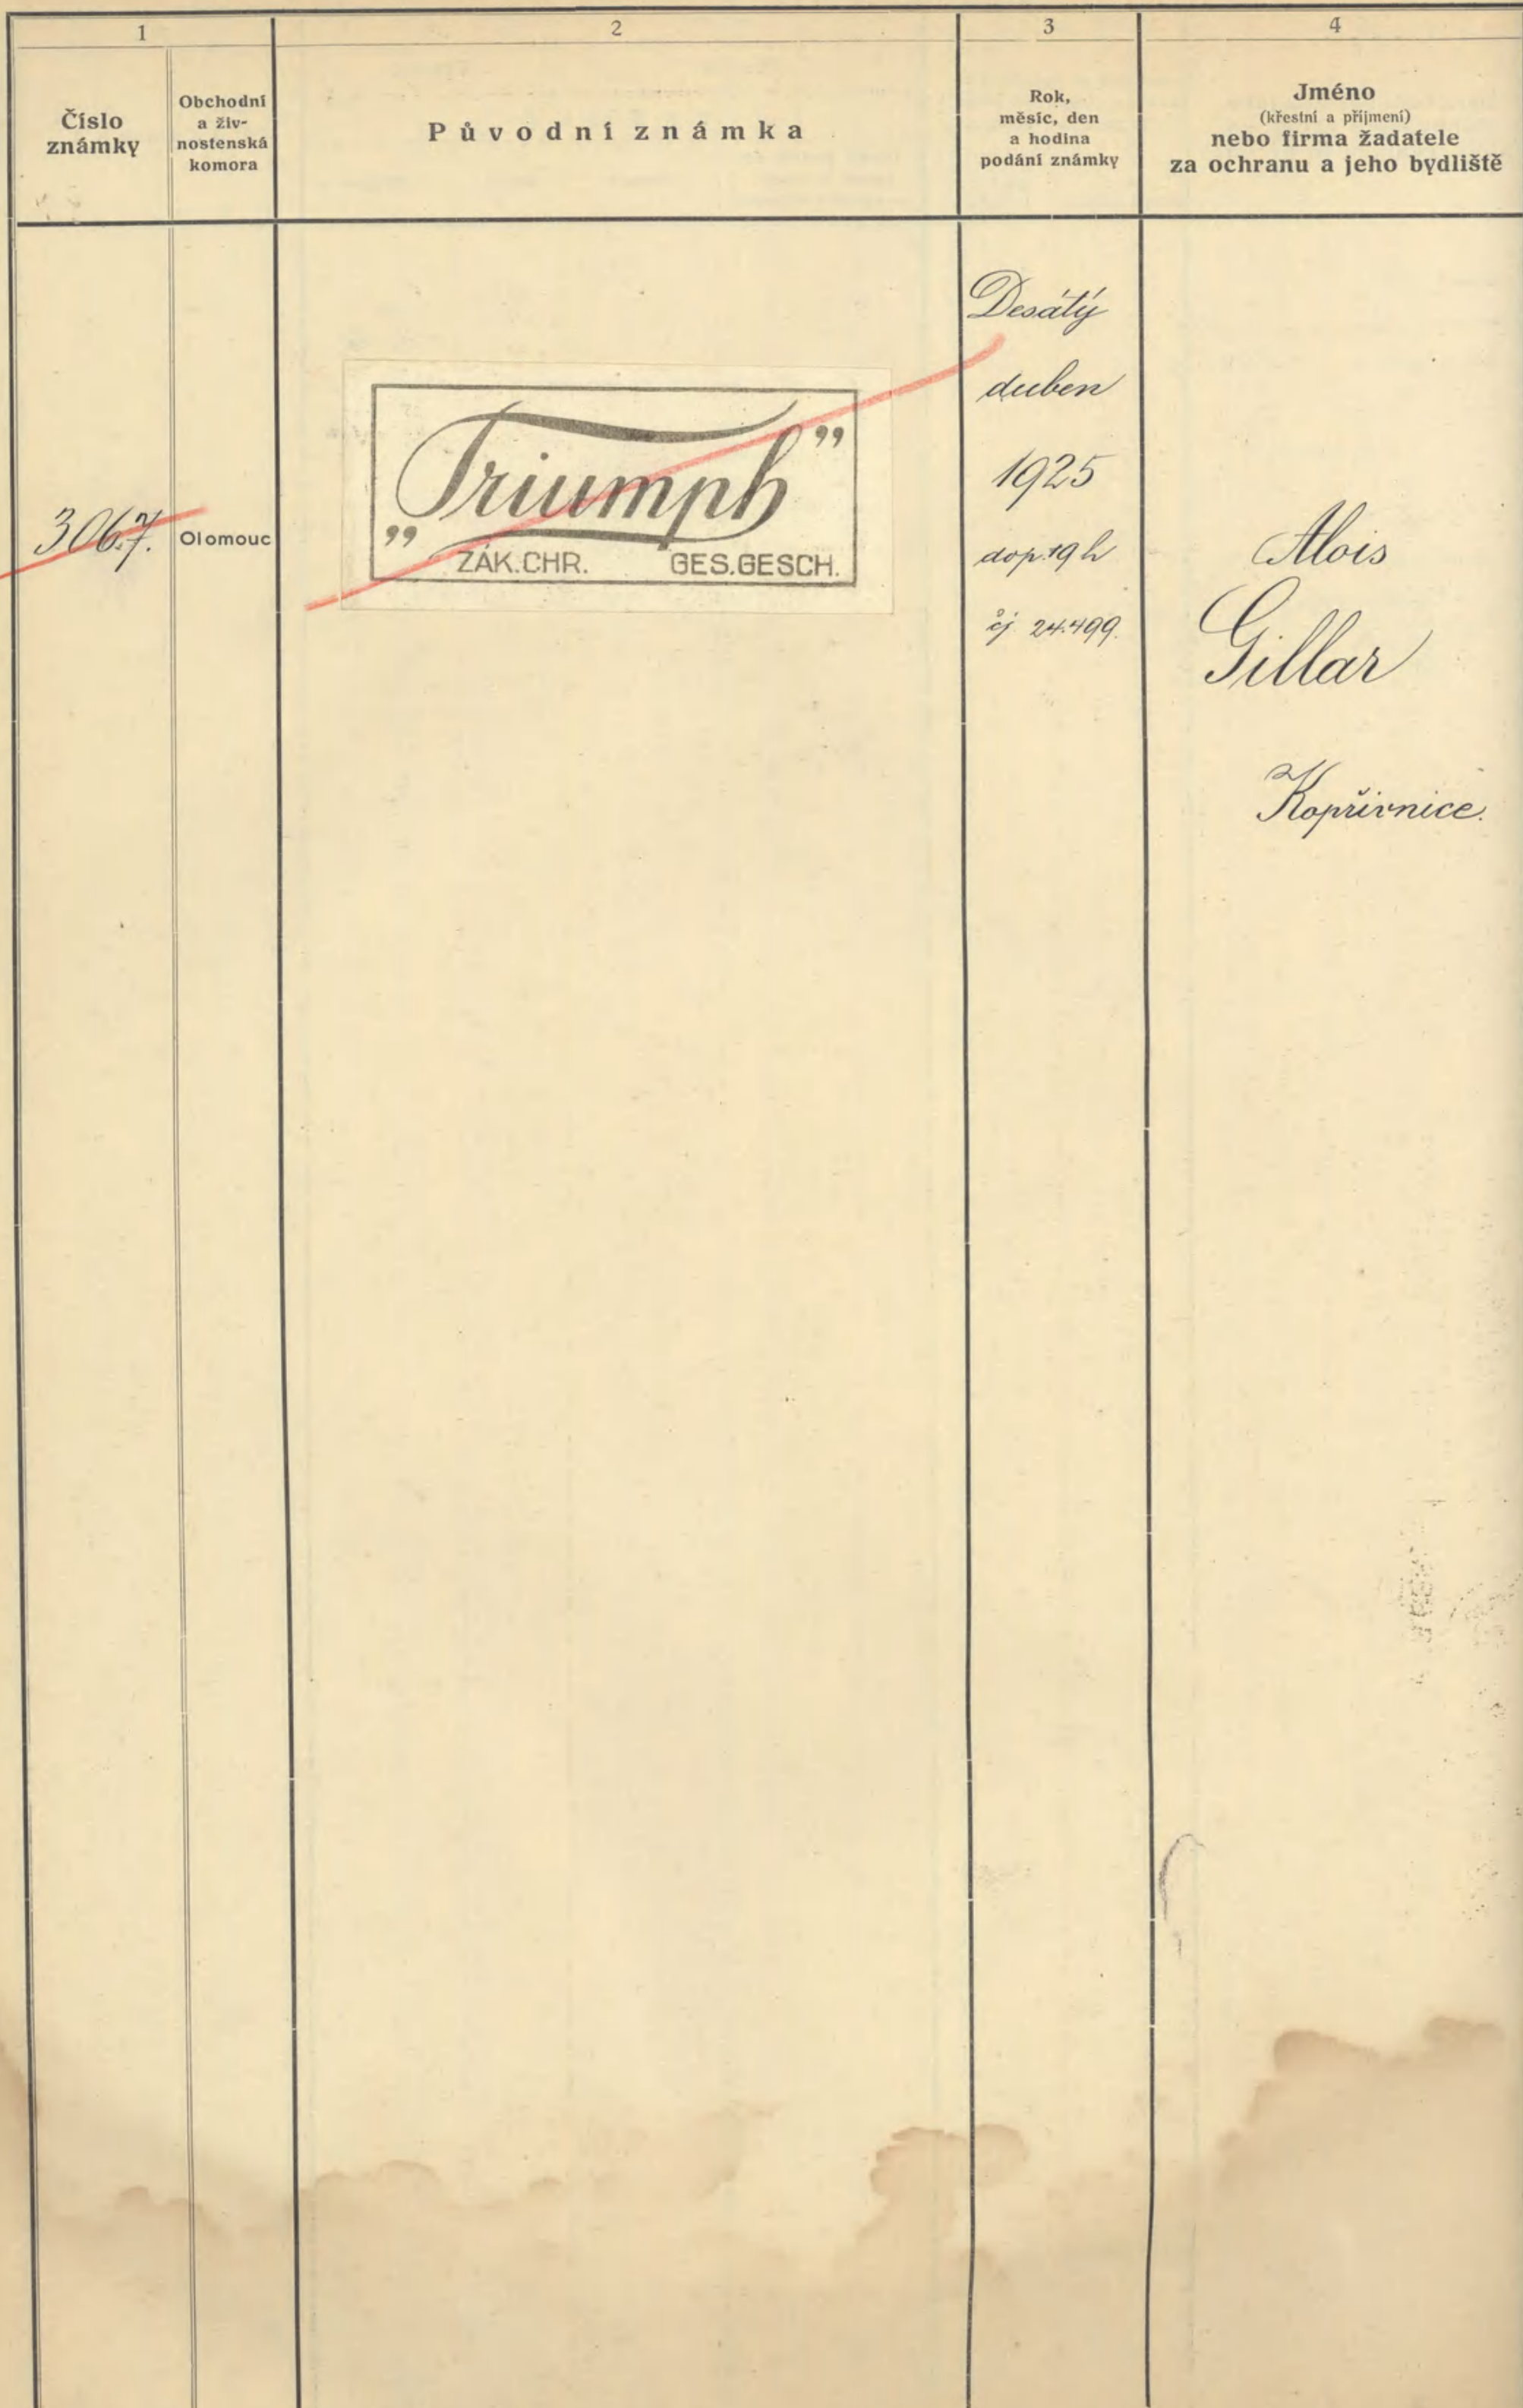 1
2
3
4
Číslo
známky
Obchodní
a živ-
nostenská
komora
Původní známka
Rok,
měsíc, den
a hodina
podání známky
Jméno
(křestní a příjmení)
nebo firma žadatele
za ochranu a jeho bydliště
3067.
Olomouc
„Triumph”
ZÁK.CHR. GES.GESCH.
Desátý
duben
1925
čj 24.499.
Alois
Gillar
Kopřivnice.